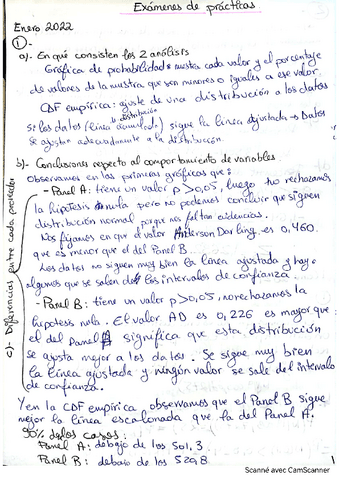 Exámenes de prácticas
Enero 2022
1-
a)- En qué consisten los 2 análisis
Gráfica de probabilidad: muestra cada valor y el porcentaje
de valores de la muestra que son menores o iguales a ese valor.
CDF empírica: ajuste de una distribución a los datos
distribución
Si los datos (línea acumulad.) sigue la línea ajustada → Datos
se ajustan adecuadamente a la distribución.
b)- Conclusiones respecto al comportamiento de variables.
Observamos en las primeras gráficas que:
- Panel A: tiene un valor p > 0,05, luego no rechazamos
la hipótesis nula pero no podemos concluir que siguen
distribución normal porque nos faltan evidencias.
Nos fijamos en que el valor Anderson Darling es 0,460
que es menor que el del Panel B.
Los datos no siguen muy bien la línea ajustada y hay
algunos que se salen de los intervalos de confianza.
- Panel B: tiene un valor p > 0,05, no rechazamos la
hipótesis nula. El valor AD es 0,226 es mayor que
el del Panel A significa que esta distribución
se ajusta mejor a los datos. Se sigue muy bien
la línea ajustada y ningún valor se sale del intervalo
de confianza.
c)- Diferencias entre cada proveedor
Y en la CDF empírica observamos que el Panel B sigue
mejor la línea escalonada que la del Panel A.
90% de los casos:
Panel A: debajo de los 501,3
Panel B: debajo de los 520,8
Scanné avec CamScanner